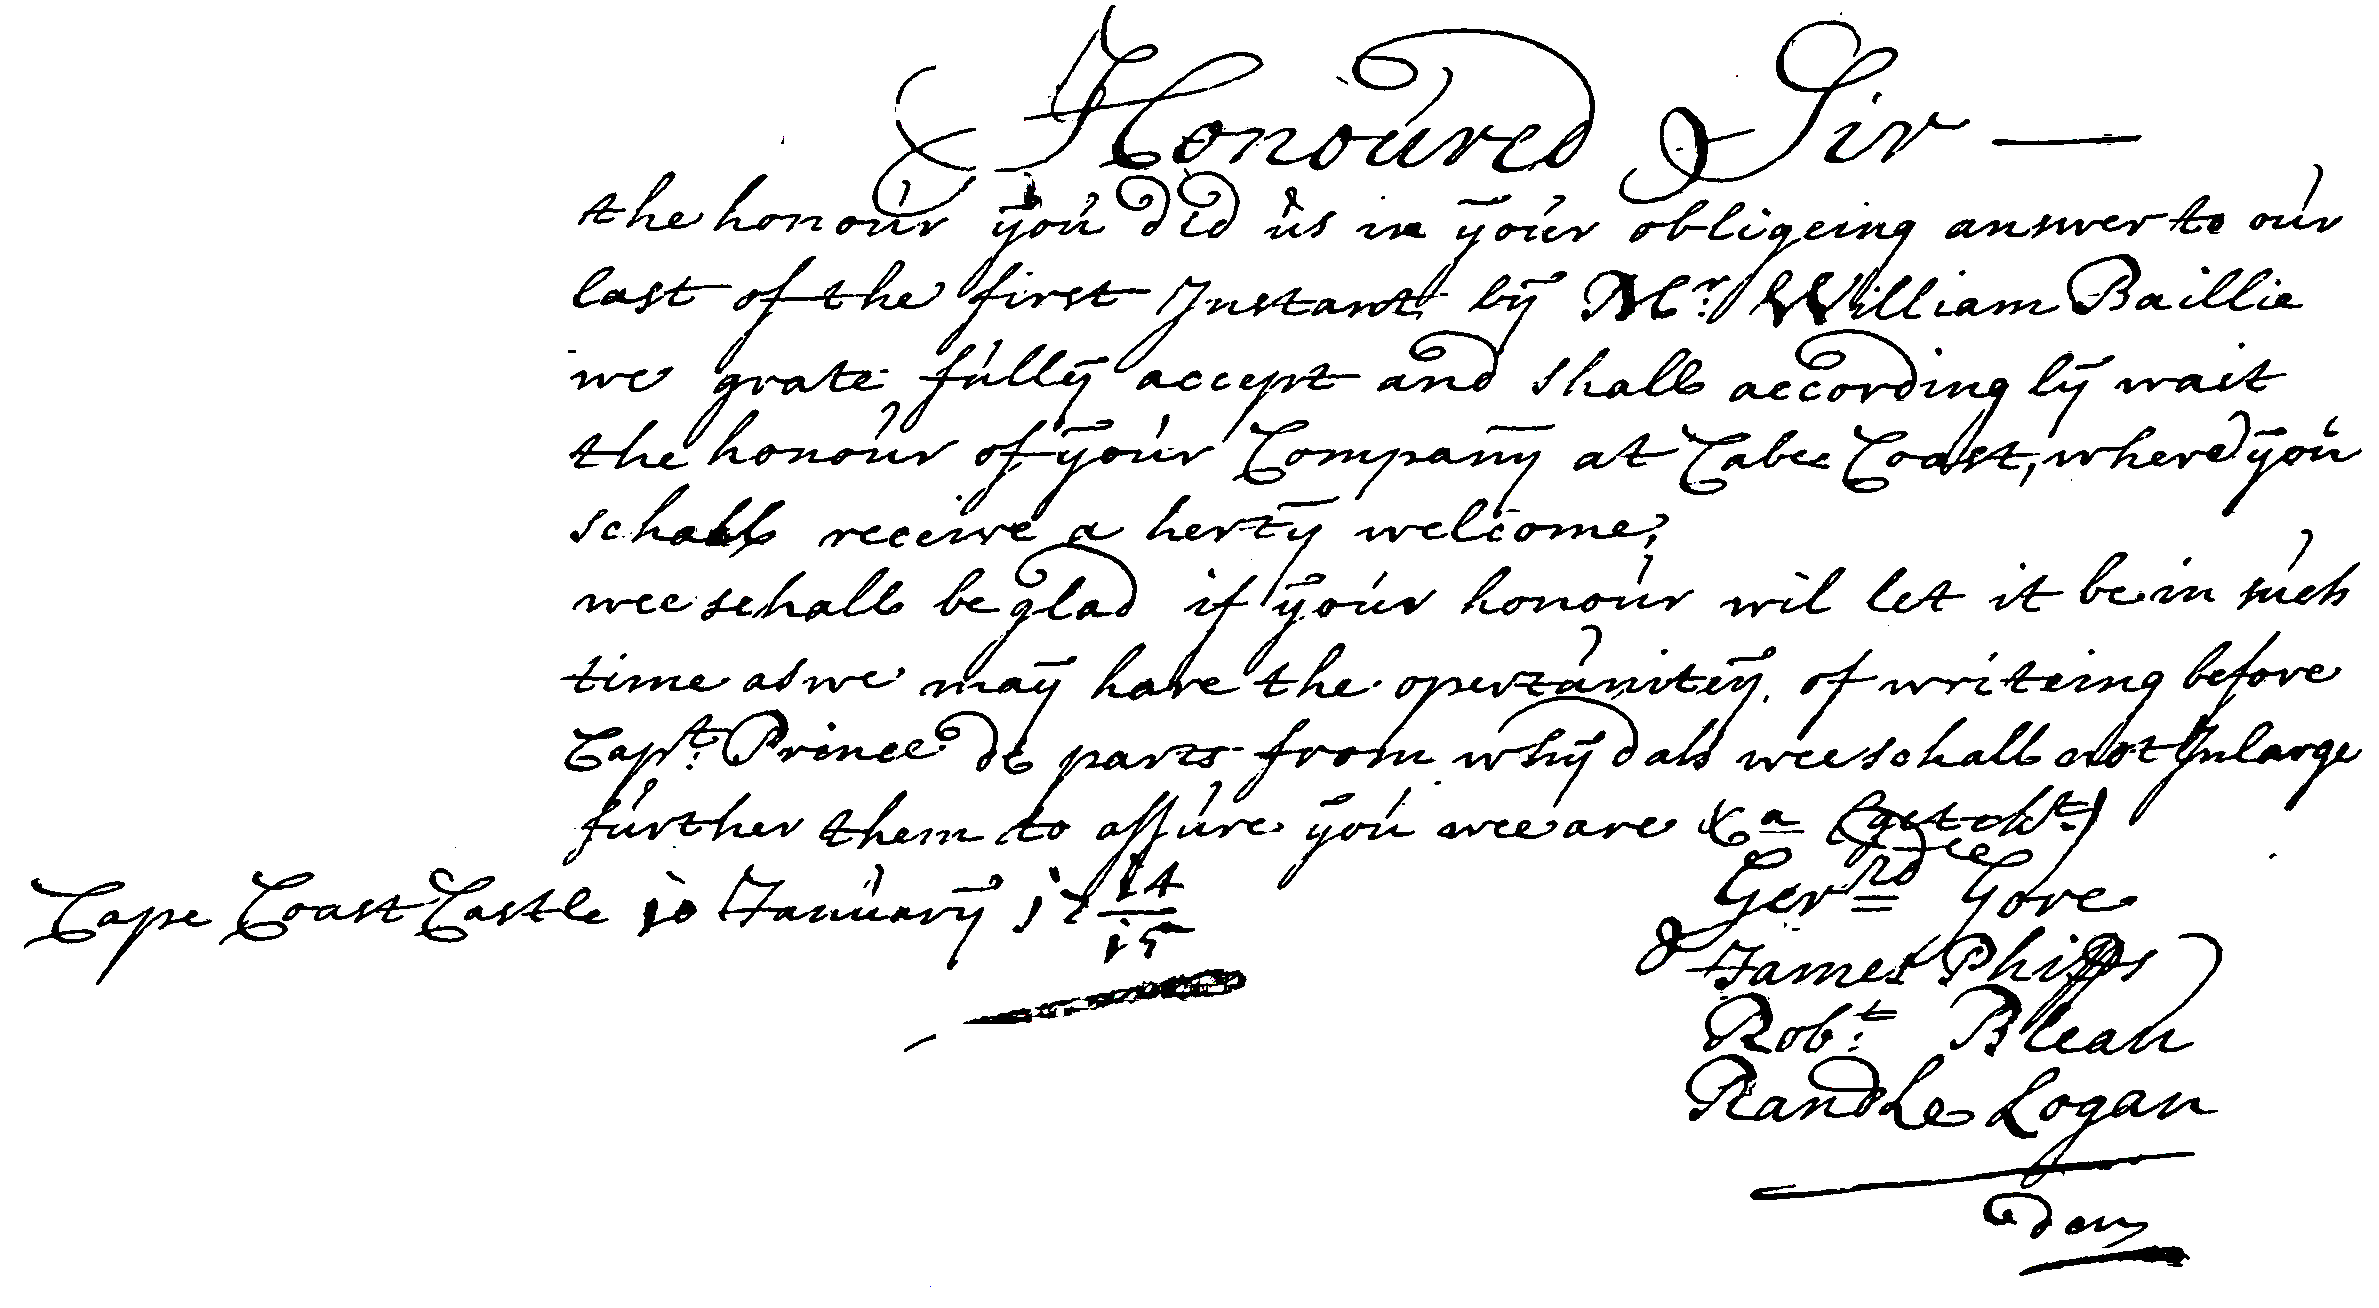 Honoured Sir —
the honour you did us in your obligeing answer to our
last of the first Instant by Mr: William Baillie
we grate fully accept and shall accordingly wait
the honour of your Company at Cabee Coast, where you
schall receive a herty welcome,
wee schall be glad if your honour wil let it be in such
time as we may have the opertunitey of writeing before
Capt: Prince de parts from whydah wee schall not Inlarge
further them to assure you wee are &a (getekt:)
Gerrd Gore
Cape Coast Castle 10 January 17 14/15
& James Phipps
Robt: Blean
Randle Logan